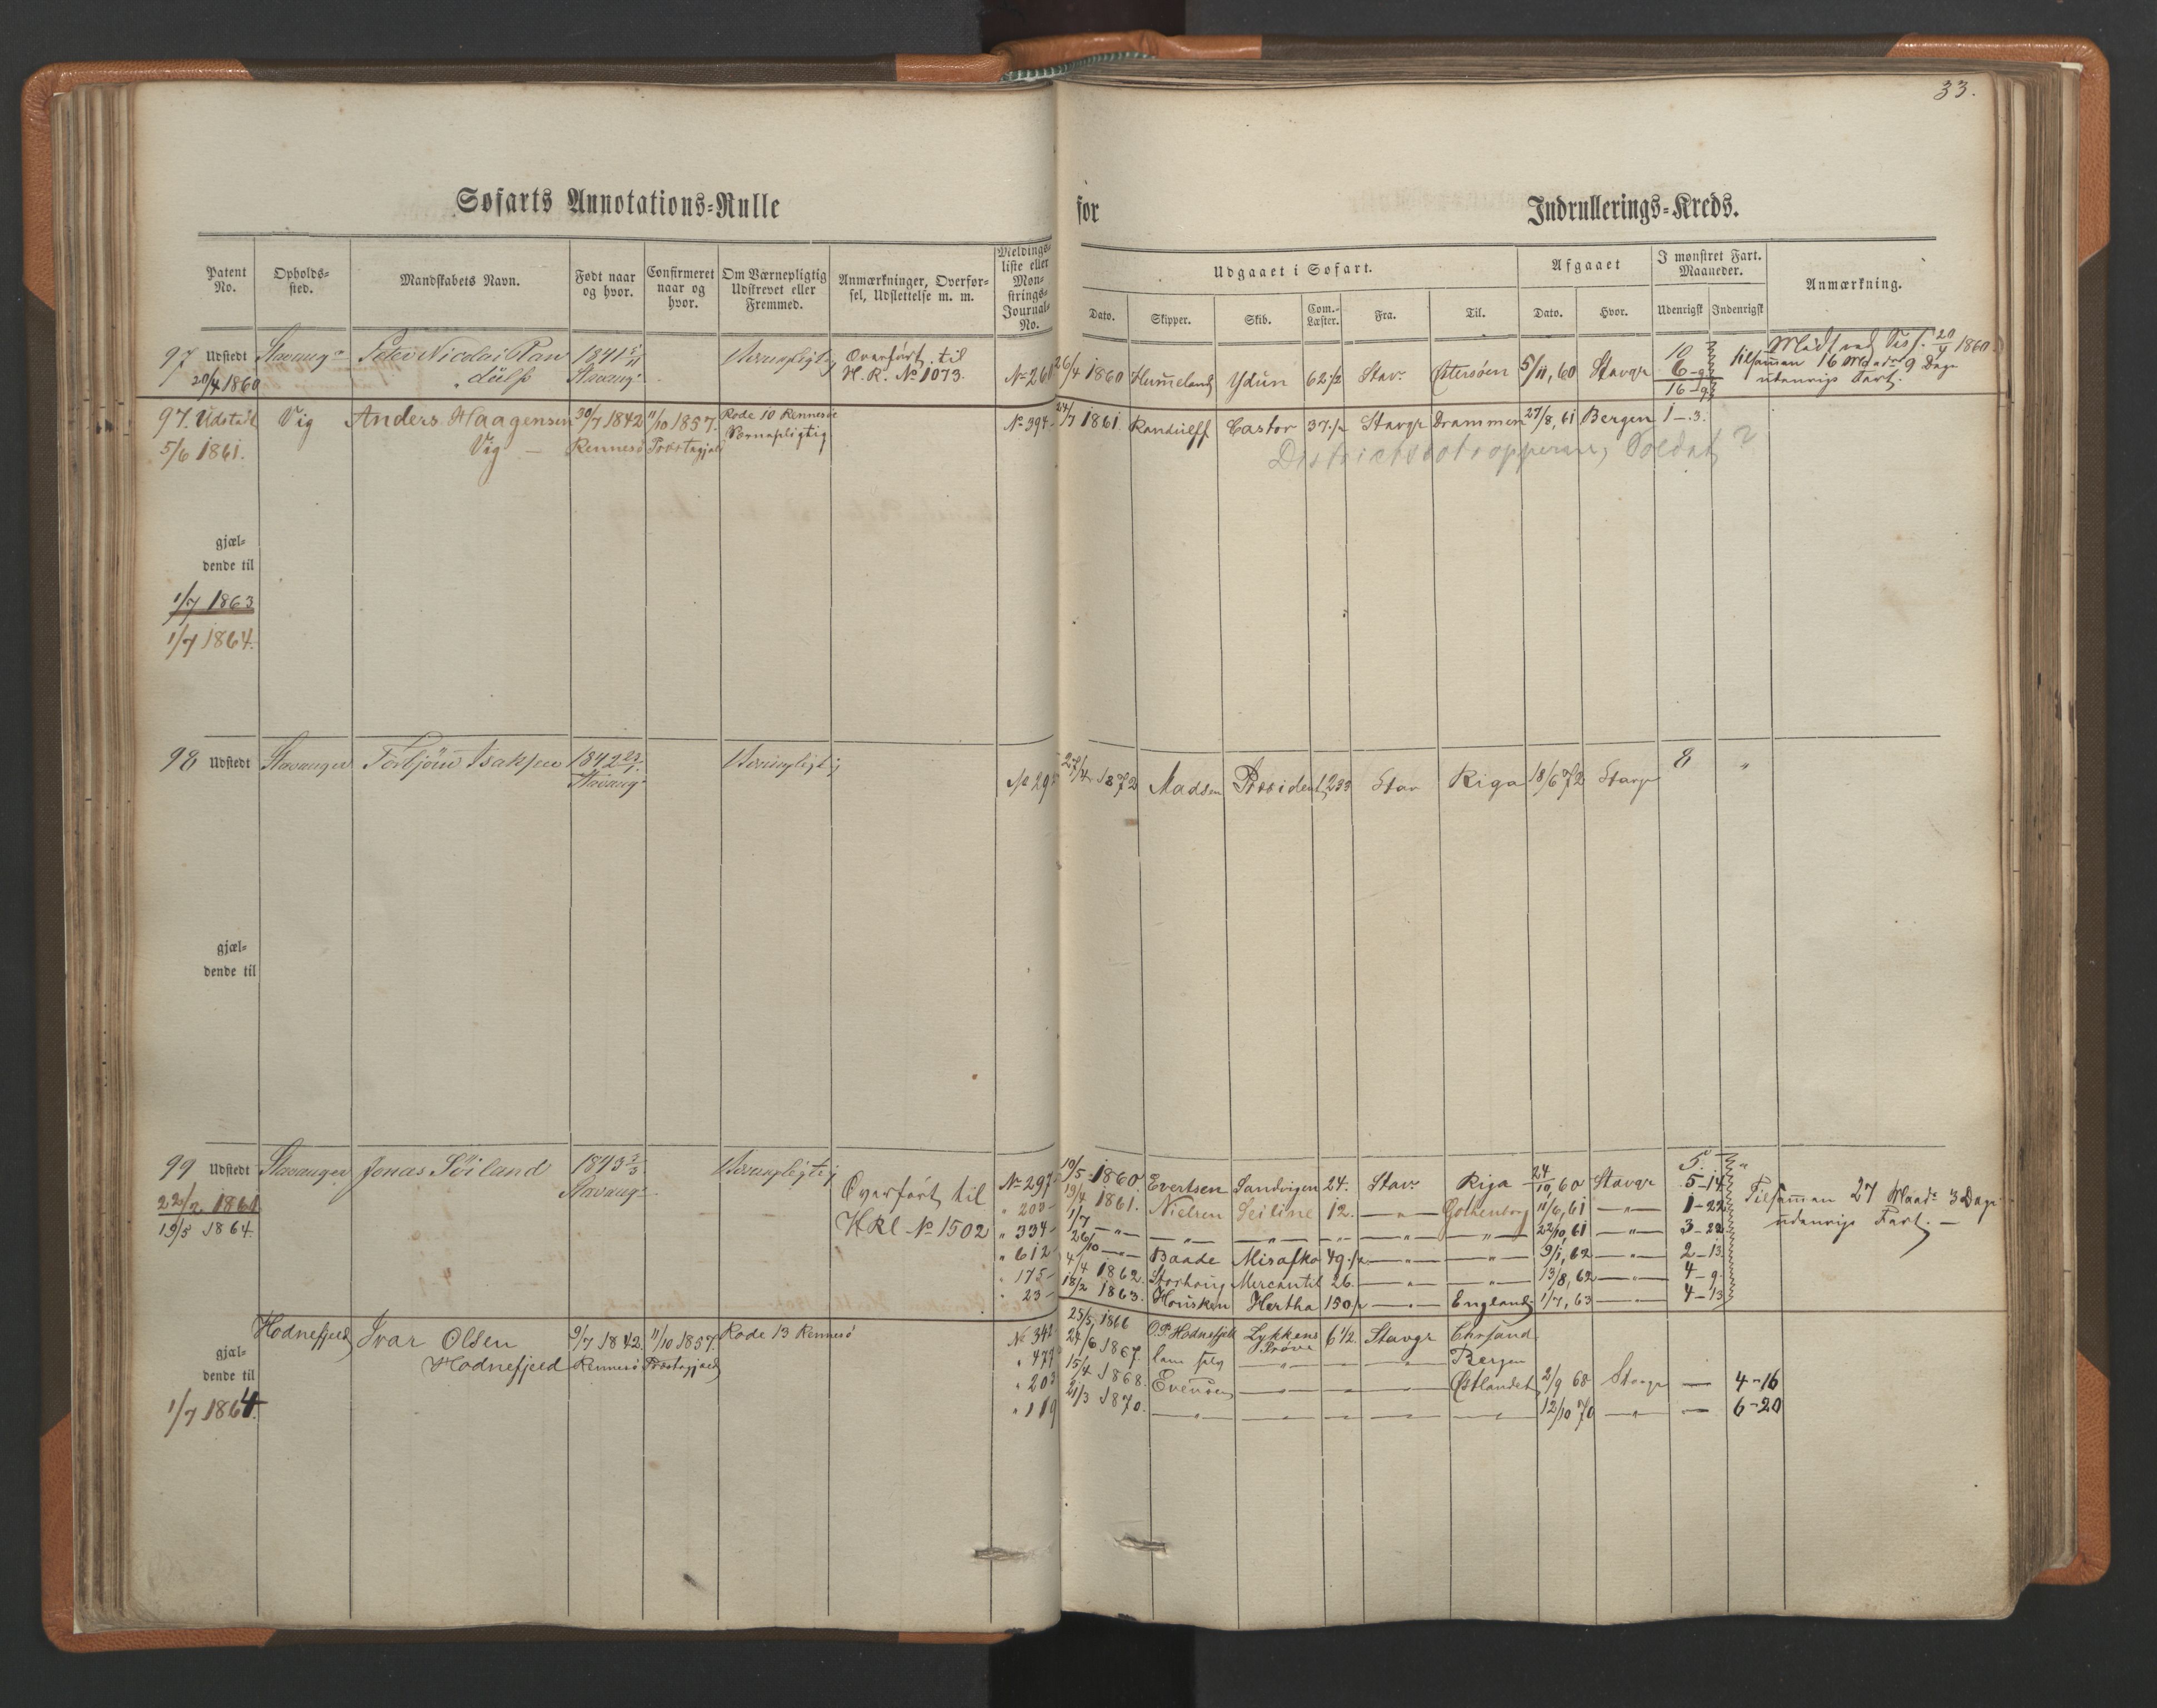 33.
Søfarts Annotations=Rulle for Indrullerings=Kreds.
Patent No.
Opholds=sted.
Mandskabets Navn.
Født naar og hvor.
Confirmeret naar og hvor.
Om Værnepligtig Udskrevet eller Fremmed.
Anmærkninger, Overfør=sel, Udslettelse m. m.
Meldings=liste eller Mon=strings=Journal=No.
Udgaaet i Søfart.
Dato.
Skipper.
Skib.
Com.=Læster.
Fra.
Til.
Afgaaet
Dato.
Hvor.
I mønstret Fart. Maaneder.
Udenrigsk
Indenrigsk
Anmærkning.
97 Udstedt Stavangr Peter Nicolai Ran 1841 Værnepligtig Overført til
20/4 1860 dulf Stavangr H. R. No 1073. No 260 26/4 1860 Hummeland Ydun 62 1/2 Stavr Østersøen 5/11, 60 Stavgr 10
6-9
16-9
20/4 1860
tilsamman 16 Mdr 9 Dage
udenrigs Fart.
97. Udstedt Vig Anders Haagensen 30/7 1842 11/10 1857. Rode 10 Rennesø No 394 24/7 1861. Randulff Castor 37 1/2 Stavgr Drammen 27/8, 61 Bergen 1-3.
5/6 1861. Vig — Rennesø Præstegjeld Værnepligtig
Soldat ?
gjæl=
dende til
1/7 1863
1/7 1864.
98 Udstedt Stavanger Torbjørn Isaksen 1842 Værnepligtig
Stavangr No 295 27/4 1872 Madsen President 233 Stav Riga 18/6 72 Stavgr 8 "
gjæl=
dende til
99 Udstedt Stavanger Jonas Søiland 1843 Værnepligtig Overført til
22/2 1861 Stavangr HRl No 1502
19/5 1864.
No 297 10/5 1860. Evertsen Sandvigen 24. Stavr Riga 24/10, 60 Stavgr 5-14
" 203 19/4 1861. Nielsen Seiline 12. —"— Gothenborg 11/6, 61 —"— 1-22
" 334 1/7 —"— —"— —"— —"— —"— —"— 22/10, 61 —"— 3-22
" 612 26/10 —"— Baade Misafko 49 1/2 —"— —"— 9/1, 62 —"— 2-13
" 175 4/4 1862. Storhoug Mercantil 26. —"— —"— 13/8, 62 —"— 4-9
" 23 13/2 1863. Housken Hertha 150 1/2 —"— England 1/7, 63 —"— 4-13
Tilsamman 27 Maadr 3 Dage
udenrigs Fart. —
Hodnefjeld Ivar Olsen 9/7 1842. 11/10 1857. Rode 13 Rennesø
Hodnefjeld Rennesø Præstegjeld
gjæl=
dende til
1/7 1864.
No 342 25/5 1866 O. P. Hodnefjell Lykkens Prøve 6 1/2 Stavgr Chrsand
" 479 24/6 1867. —"— —"— Bergen
" 203 15/4 1868. Evensen —"— —"— Østlandet 2/9 68 Stavgr — 4-16
" 119 21/3 1870. —"— —"— —"— 12/10 70 —"— — 6-20